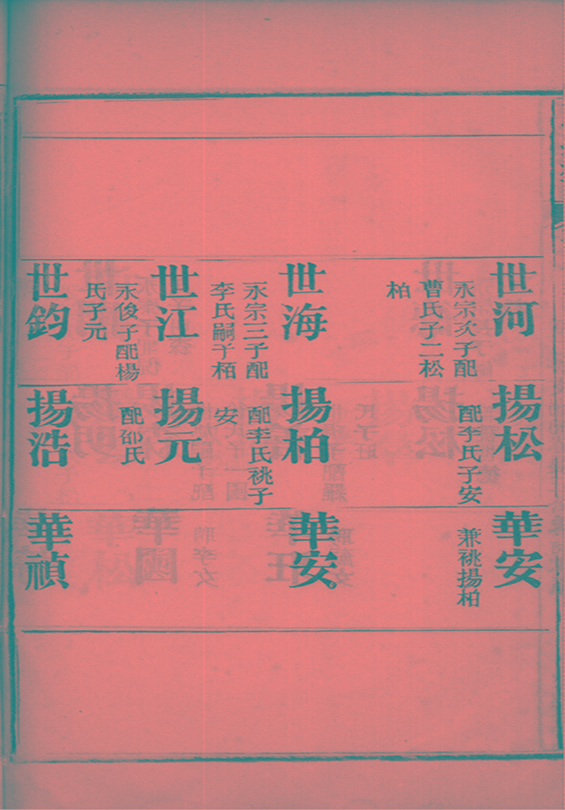 世河
永宗次子配
曹氏子二松
柏
世海
永宗三子配
李氏嗣子栢
世江
永俊子配楊
氏子元
世鈞
揚松
配李氏子安
揚柏
配李氏祧子
安
揚元
配邵氏
揚浩
華安
兼祧揚柏
華安
華禎